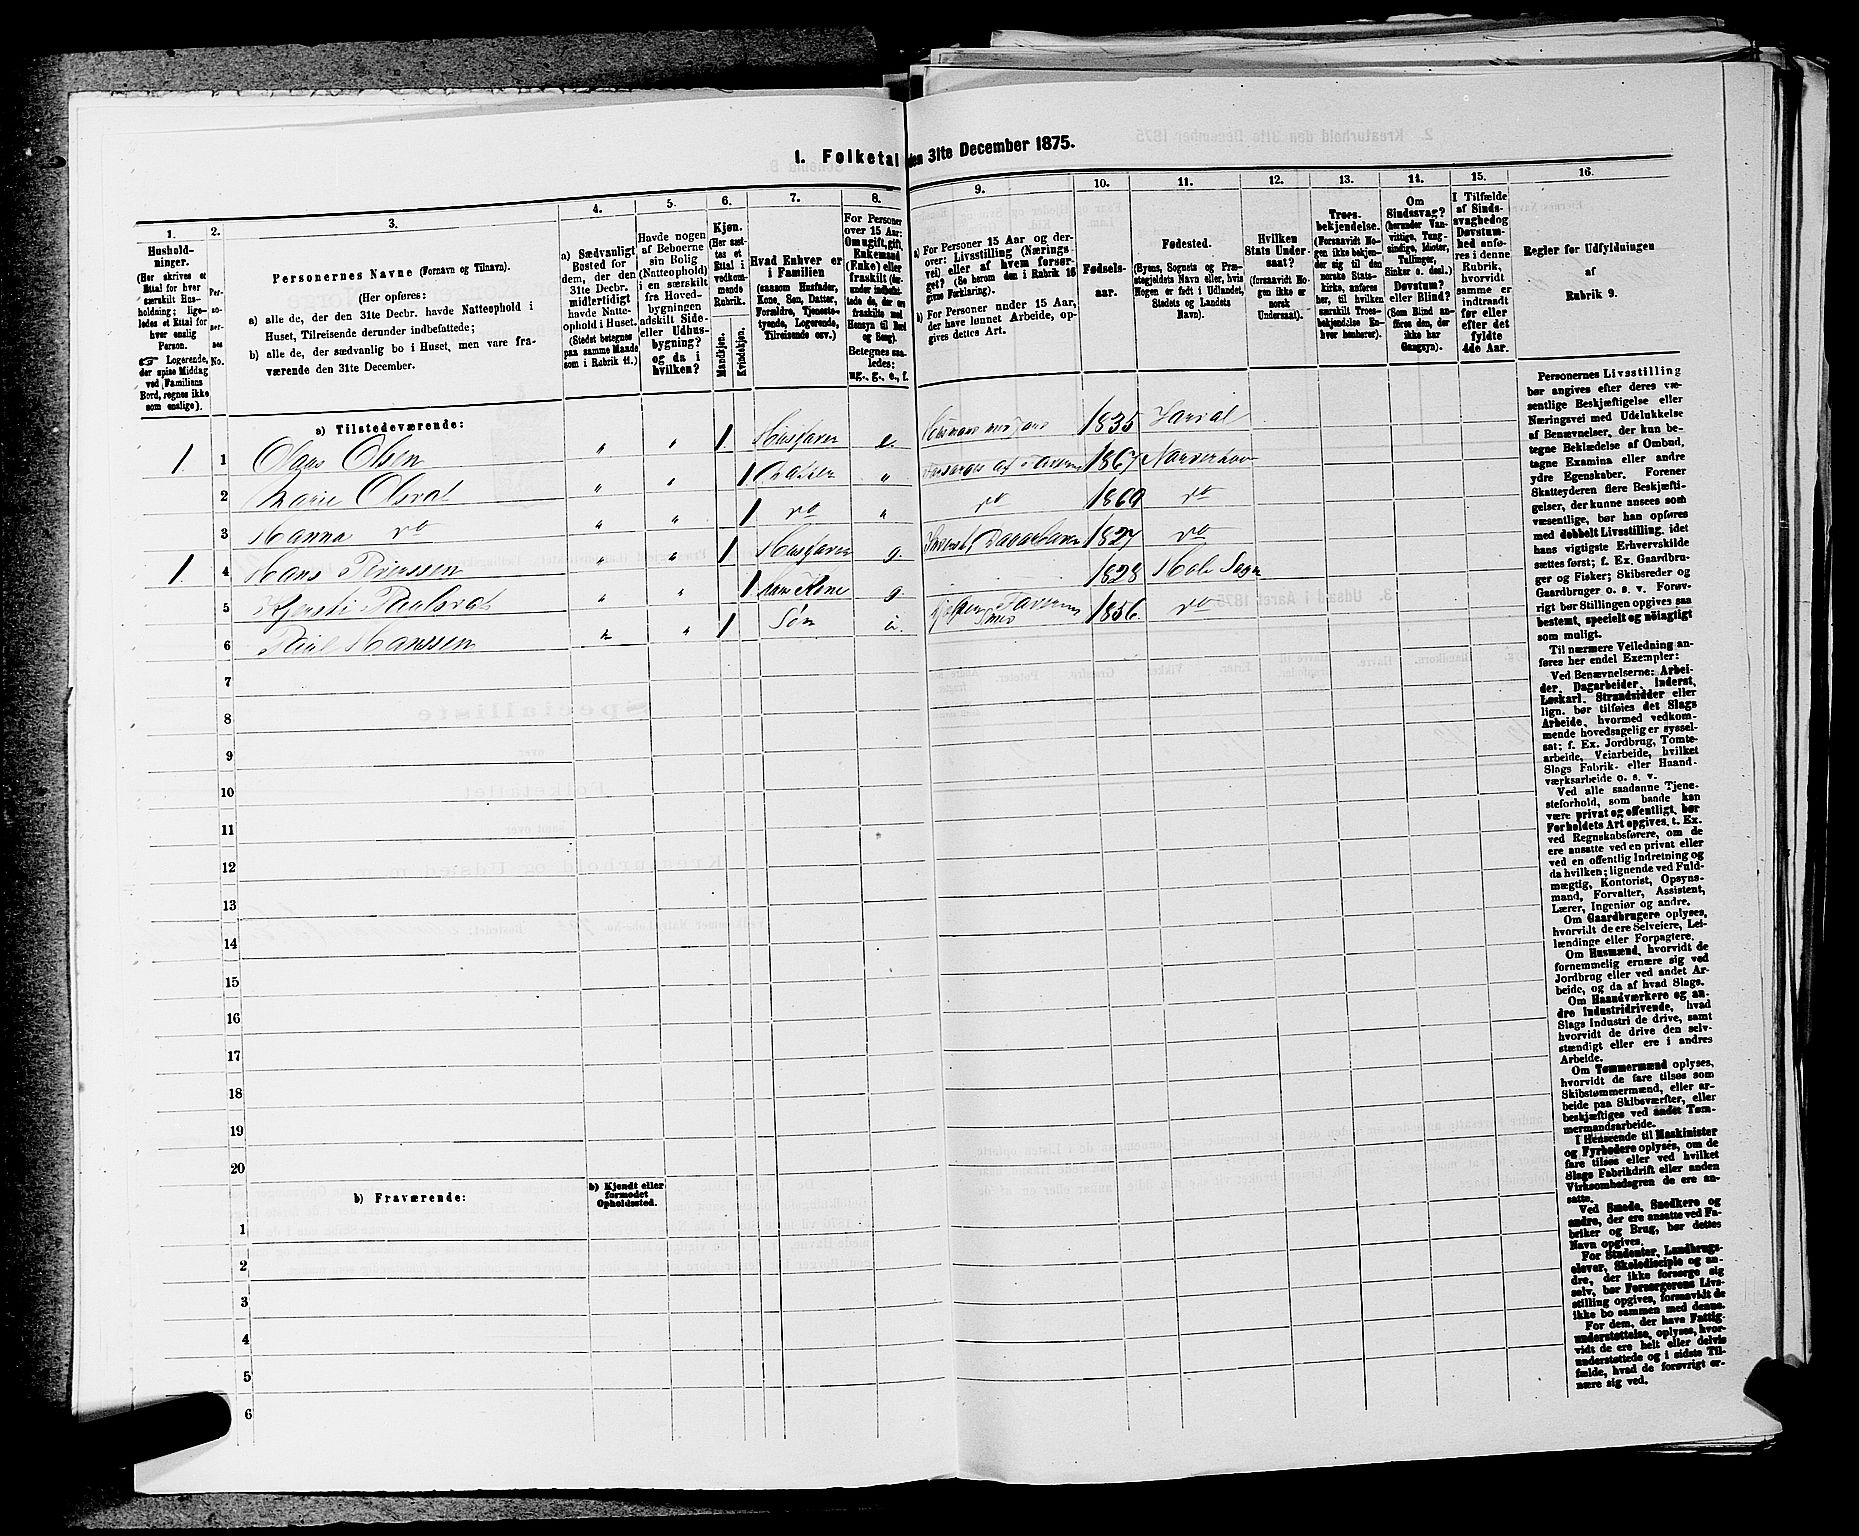 1. Folketal den 31te December 1875.
1.
Hushold-
ninger.
(Her skrives et
Ettal for hver
særskilt Hus-
holdning; lige-
ledes et Ettal for
hver enslig
Person.
☞ Logerende,
der spise Middag
ved Familiens
Bord, regnes ikke
som enslige).
2.
Per-
so-
ner-
nes
No.
3.
Personernes Navne (Fornavn og Tilnavn).
(Her opføres:
a) alle de, der den 31te Decbr. havde Natteophold i
Huset, Tilreisende derunder indbefattede;
b) alle de, der sædvanlig bo i Huset, men vare fra-
værende den 31te December.
4.
a) Sædvanligt
Bosted for
dem, der den
31te Decbr.
midlertidigt
havde Natte-
ophold i Huset.
(Stedet betegnes
paa samme Maade
som i Rubrik 11.)
5.
Havde nogen
af Beboerne
sin Bolig
(Natteophold)
i en særskilt
fra Hoved-
bygningen
adskilt Side-
eller Udhus-
bygning?
og da i
hvilken?
6.
Kjøn.
(Her sæt-
tes et
Ettal i
vedkom-
mende
Rubrik.
Mandkjøn.
Kvindekjøn.
7.
Hvad Enhver er
i Familien
(saasom Husfader,
Kone, Søn, Datter,
Forældre, Tjeneste-
tyende, Logerende,
Tilreisende osv.)
8.
For Personer
over 15 Aar:
Om ugift, gift,
Enkemand
(Enke) eller
fraskilt (der-
under indbefat-
tede de, der ere
fraskilte med
Hensyn til Bord
og Seng).
Betegnes saa-
ledes:
ug., g., e., f.
9.
a) For Personer 15 Aar og der-
over: Livsstilling (Nærings-
vei) eller af hvem forsør-
get? (Se herom den i Rubrik 16
givne Forklaring).
b) For Personer under 15 Aar,
der have lønnet Arbeide, op-
gives dettes Art.
10.
Fødsels-
aar.
11.
Fødested.
(Byens, Sognets og Præ-
stegjeldets Navn eller, hvis
Nogen er født i Udlandet,
Stedets og Landets
Navn).
12.
Hvilken
Stats Under-
saat?
(forsaavidt No-
gen ikke er
norsk
Undersaat).
13.
Troes-
bekjendelse.
(Forsaavidt No-
gen ikke bekjen-
der sig til den
norske Stats-
kirke, anføres
her, til hvilken
særskilt Troes-
bekjendelse En-
hver henhører).
14.
Om
Sindssvag?
(herunder Van-
vittige, Tung-
sindige, Idioter,
Tullinger,
Sinker o. desl.)
Døvstum?
eller Blind?
(Som Blind an-
føres den, der
ikke har
Gangsyn).
15.
I Tilfælde
af Sinds-
svaghed og
Døvstum-
hed anfø-
res i denne
Rubrik,
hvorvidt
samme er
indtraadt
før eller
efter det
fyldte
4de Aar.
16.
Regler for Udfyldningen
af
Rubrik 9.
a) Tilstedeværende:
1. 1 Olsen „ „ 1 Husfader e. 1835
2 Marie Olsdat „ „ 1 Datter „ 1867
3 Hanna do „ „ 1 do „ do 1869 do
1. 4 Hans Pederssen „ „ 1 Husfader g. 1827 do
5 Kjersti Paalsdat „ „ 1 hans Kone g. 1828 Hole Sogn
6 Hanssen „ „ 1 Søn u. 1856. do
7
8
9
10
11
12
13
14
15
16
17
18
19
20
b) Fraværende:
b) Kjendt eller
formodet
Opholdssted.
1
2
3
4
5
6
Personernes Livsstilling
bør angives efter deres væ-
sentlige Beskjæftigelse eller
Næringsvei med Udelukkelse
af Benævnelser, der kun be-
tegne Beklædelse af Ombud,
tagne Examina eller andre
ydre Egenskaber. Forener
Skatteyderen flere Beskjæfti-
gelser, der kunne ansees som
væsentlige, bør han opføres
med dobbelt Livsstilling, idet
hans vigtigste Erhvervskilde
sættes først; f. Ex. Gaardbru-
ger og Fisker; Skibsreder og
Gaardbruger o. s. v. Forøv-
rigt bør Stillingen opgives saa
bestemt, specielt og nöiagtigt
som muligt.
Til nærmere Veiledning an-
føres her endel Exempler:
Ved Benævnelserne: Arbei-
der, Dagarbeider, Inderst,
Løskarl, Strandsidder eller
lign. bør tilføies det Slags
Arbeide, hvormed vedkom-
mende hovedsagelig er syssel-
sat; f. Ex. Jordbrug, Tomte-
arbeide, Veiarbeide, hvilket
Slags Fabrik- eller Haand-
værksarbeide o. s. v.
Ved alle saadanne Tjene-
steforhold, som baade kan
være privat og offentligt, bør
Forholdets Art opgives, t. Ex.
ved Regnskabsførere, om de
ere ansatte ved en privat eller
ved en offentlig Indretning og
da hvilken; lignende ved Fuld-
mægtig, Kontorist, Opsyns-
mand, Forvalter, Assistent,
Lærer, Ingeniør og andre.
Om Gaardbrugere oplyses,
hvorvidt de ere Selveiere, Lei-
lændinge eller Forpagtere.
Om Husmænd, hvorvidt de
fornemmelig ernære sig ved
Jordbrug eller ved andet Ar-
beide, og da af hvad Slags.
Om Haandværkere og an-
dre Industridrivende, hvad
Slags Industri de drive, samt
hvorvidt de drive den selv-
stændigt eller ere i andres
Arbeide.
Om Tømmermænd oplyses,
hvorvidt de fare tilsøs som
Skibstømmermænd, eller ar-
beide paa Skibsværfter, eller
beskjæftiges ved andet Tøm-
mermandsarbeide.
I Henseende til Maskinister
og Fyrbødere oplyses, om de
fare tilsøs eller ved hvilket
Slags Fabrikdrift eller anden
Virksomhedsgren de ere an-
satte.
Ved Smede, Snedkere og
andre, der ere ansatte ved Fa-
briker og Brug, bør dettes
Navn opgives.
For Studenter, Landbrugs-
elever, Skoledisciple og an-
dre, der ikke forsørge sig
selv, bør Forsørgerens Livs-
stilling opgives, forsaavidt de
ikke bo sammen med denne.
For dem, der have Fattig-
understøttelse, oplyses, hvor-
vidt de ere helt eller delvis
understøttede og i sidste Til-
fælde, hvad de forøvrigt er-
nære sig ved.